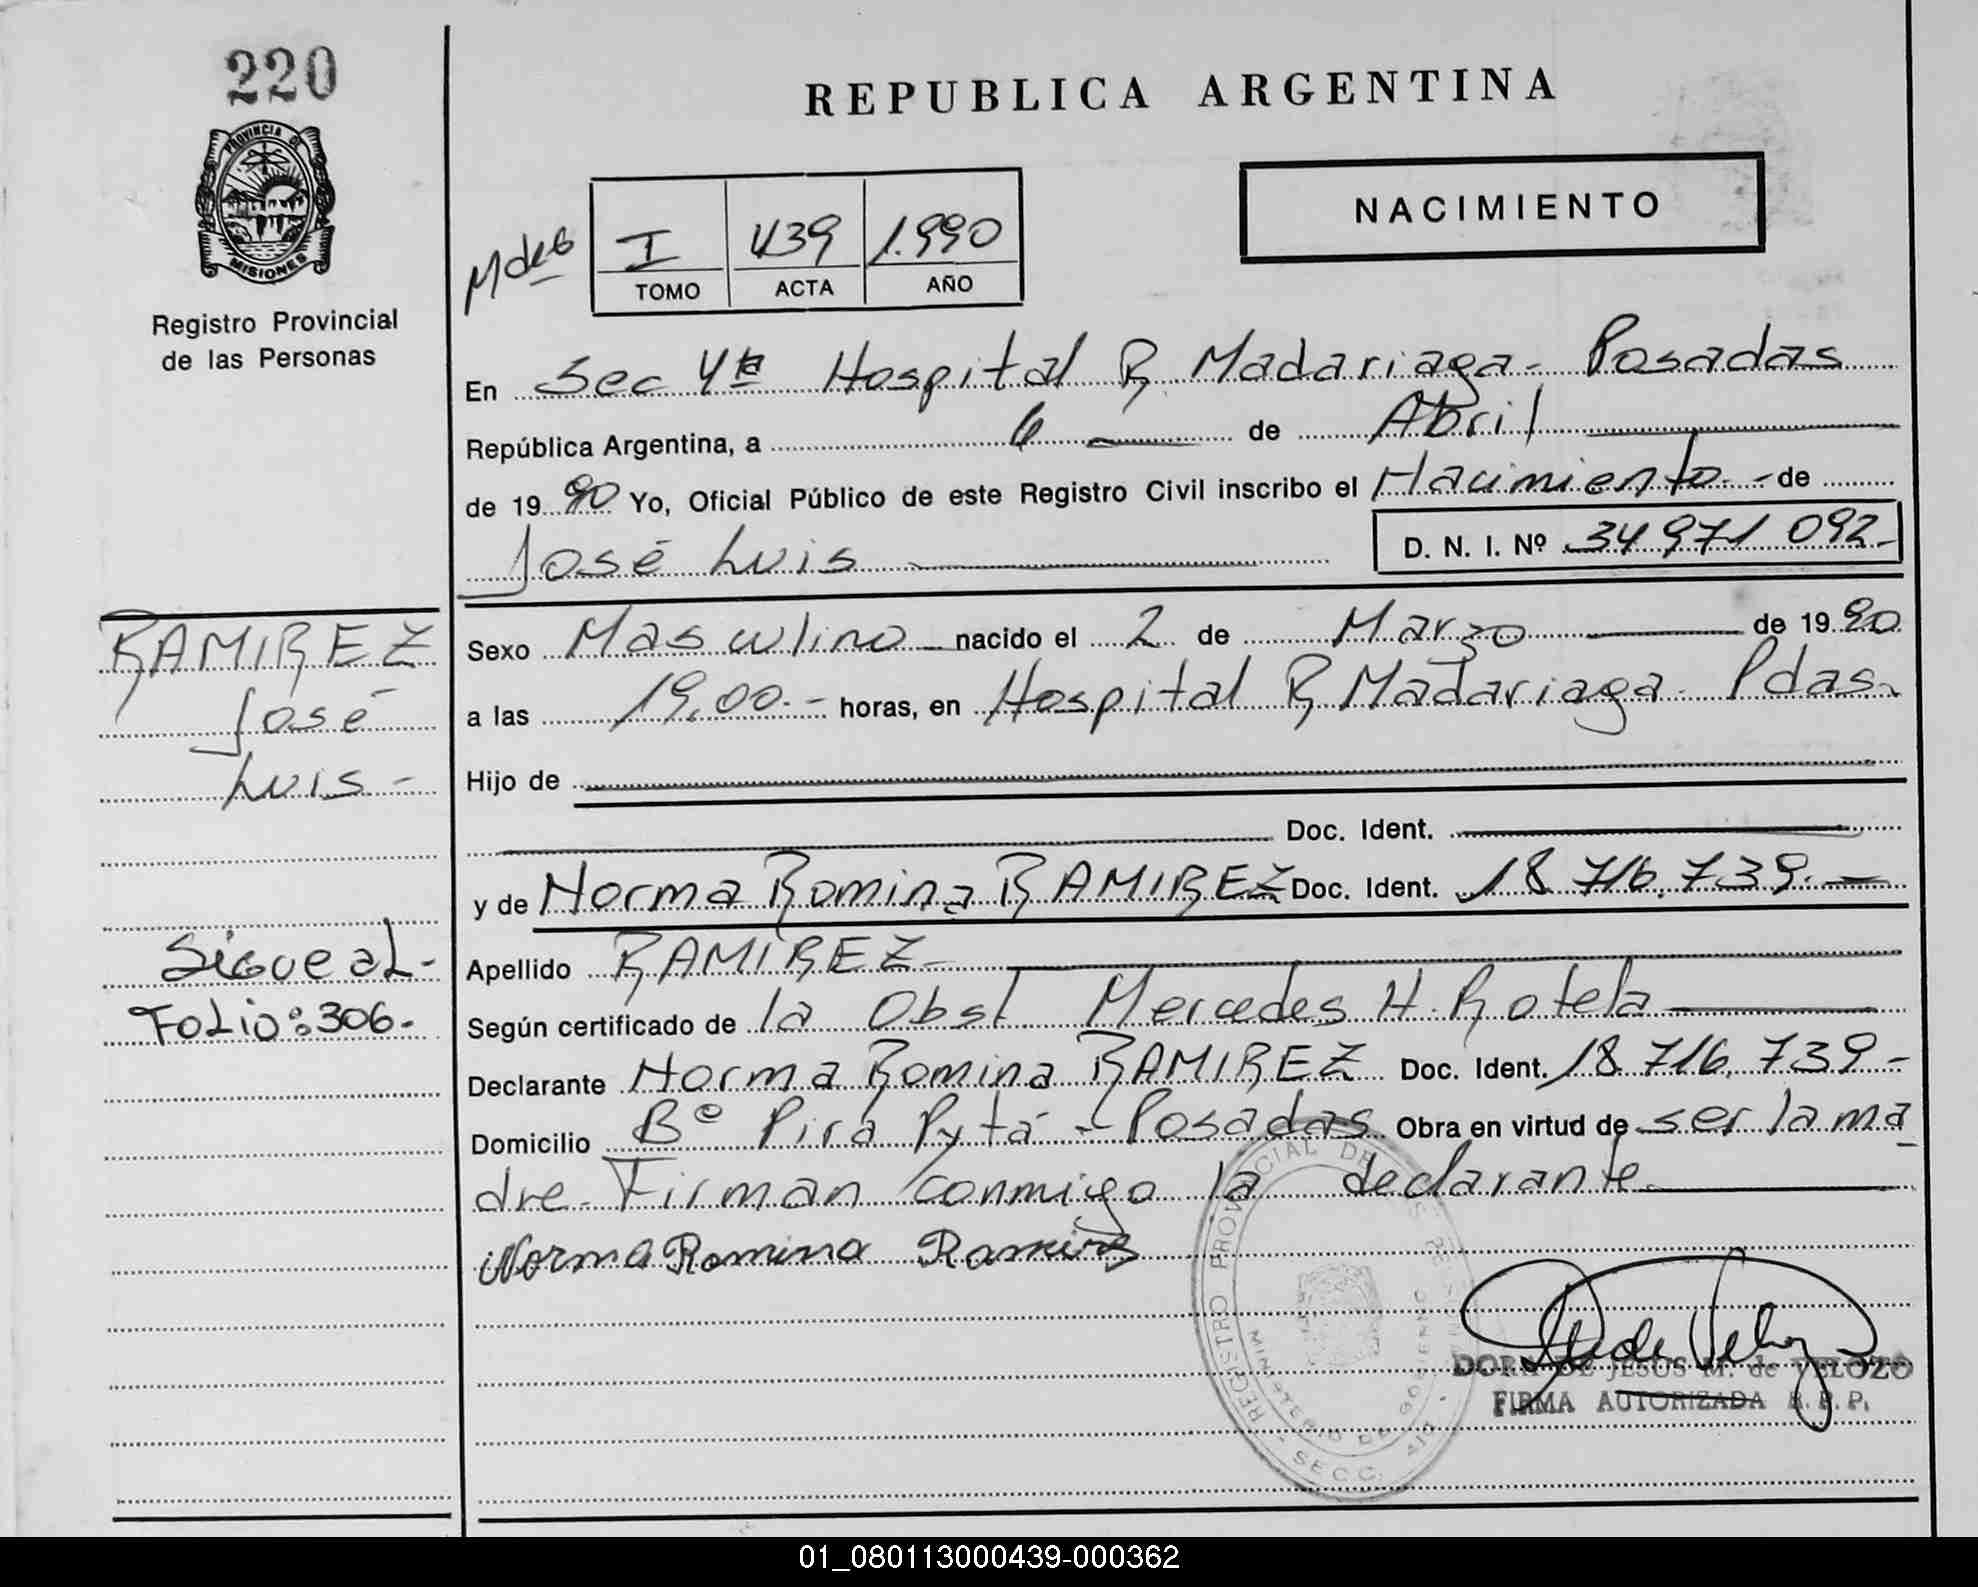 220
REPUBLICA ARGENTINA
PROVINCIA DE
MISIONES
Registro Provincial
de las Personas
NACIMIENTO
I 439 1.990
TOMO ACTA AÑO
En Sec 4ta Hospital R. Madariaga - Posadas
República Argentina, a 6 de Abril
de 1990 Yo, Oficial Público de este Registro Civil inscribo el Nacimiento - de
José Luis D. N. I. Nº 34 971 092-
RAMIREZ
José
Luis -
Sexo Masculino nacido el 2 de Marzo de 1990
a las 19,00.- horas, en Hospital R. Madariaga - Pdas.
Hijo de
Doc. Ident.
y de Norma Romina RAMIREZ Doc. Ident. 18.716.739.-
Sigue al -
Folio: 306.
Apellido RAMIREZ -
Según certificado de la Obst Mercedes H. Rotela
Declarante Norma Romina RAMIREZ Doc. Ident. 18.716.739-
Domicilio Bº Pirá Pytá - Posadas Obra en virtud de ser la ma
dre - Firman conmigo la declarante
Norma Romina Ramirez
REGISTRO PROVINCIAL DE
MINISTERIO DE GOBIERNO
SECC.
DORA DE JESUS M. de VELOZO
FIRMA AUTORIZADA R. P. P.
01_080113000439-000362